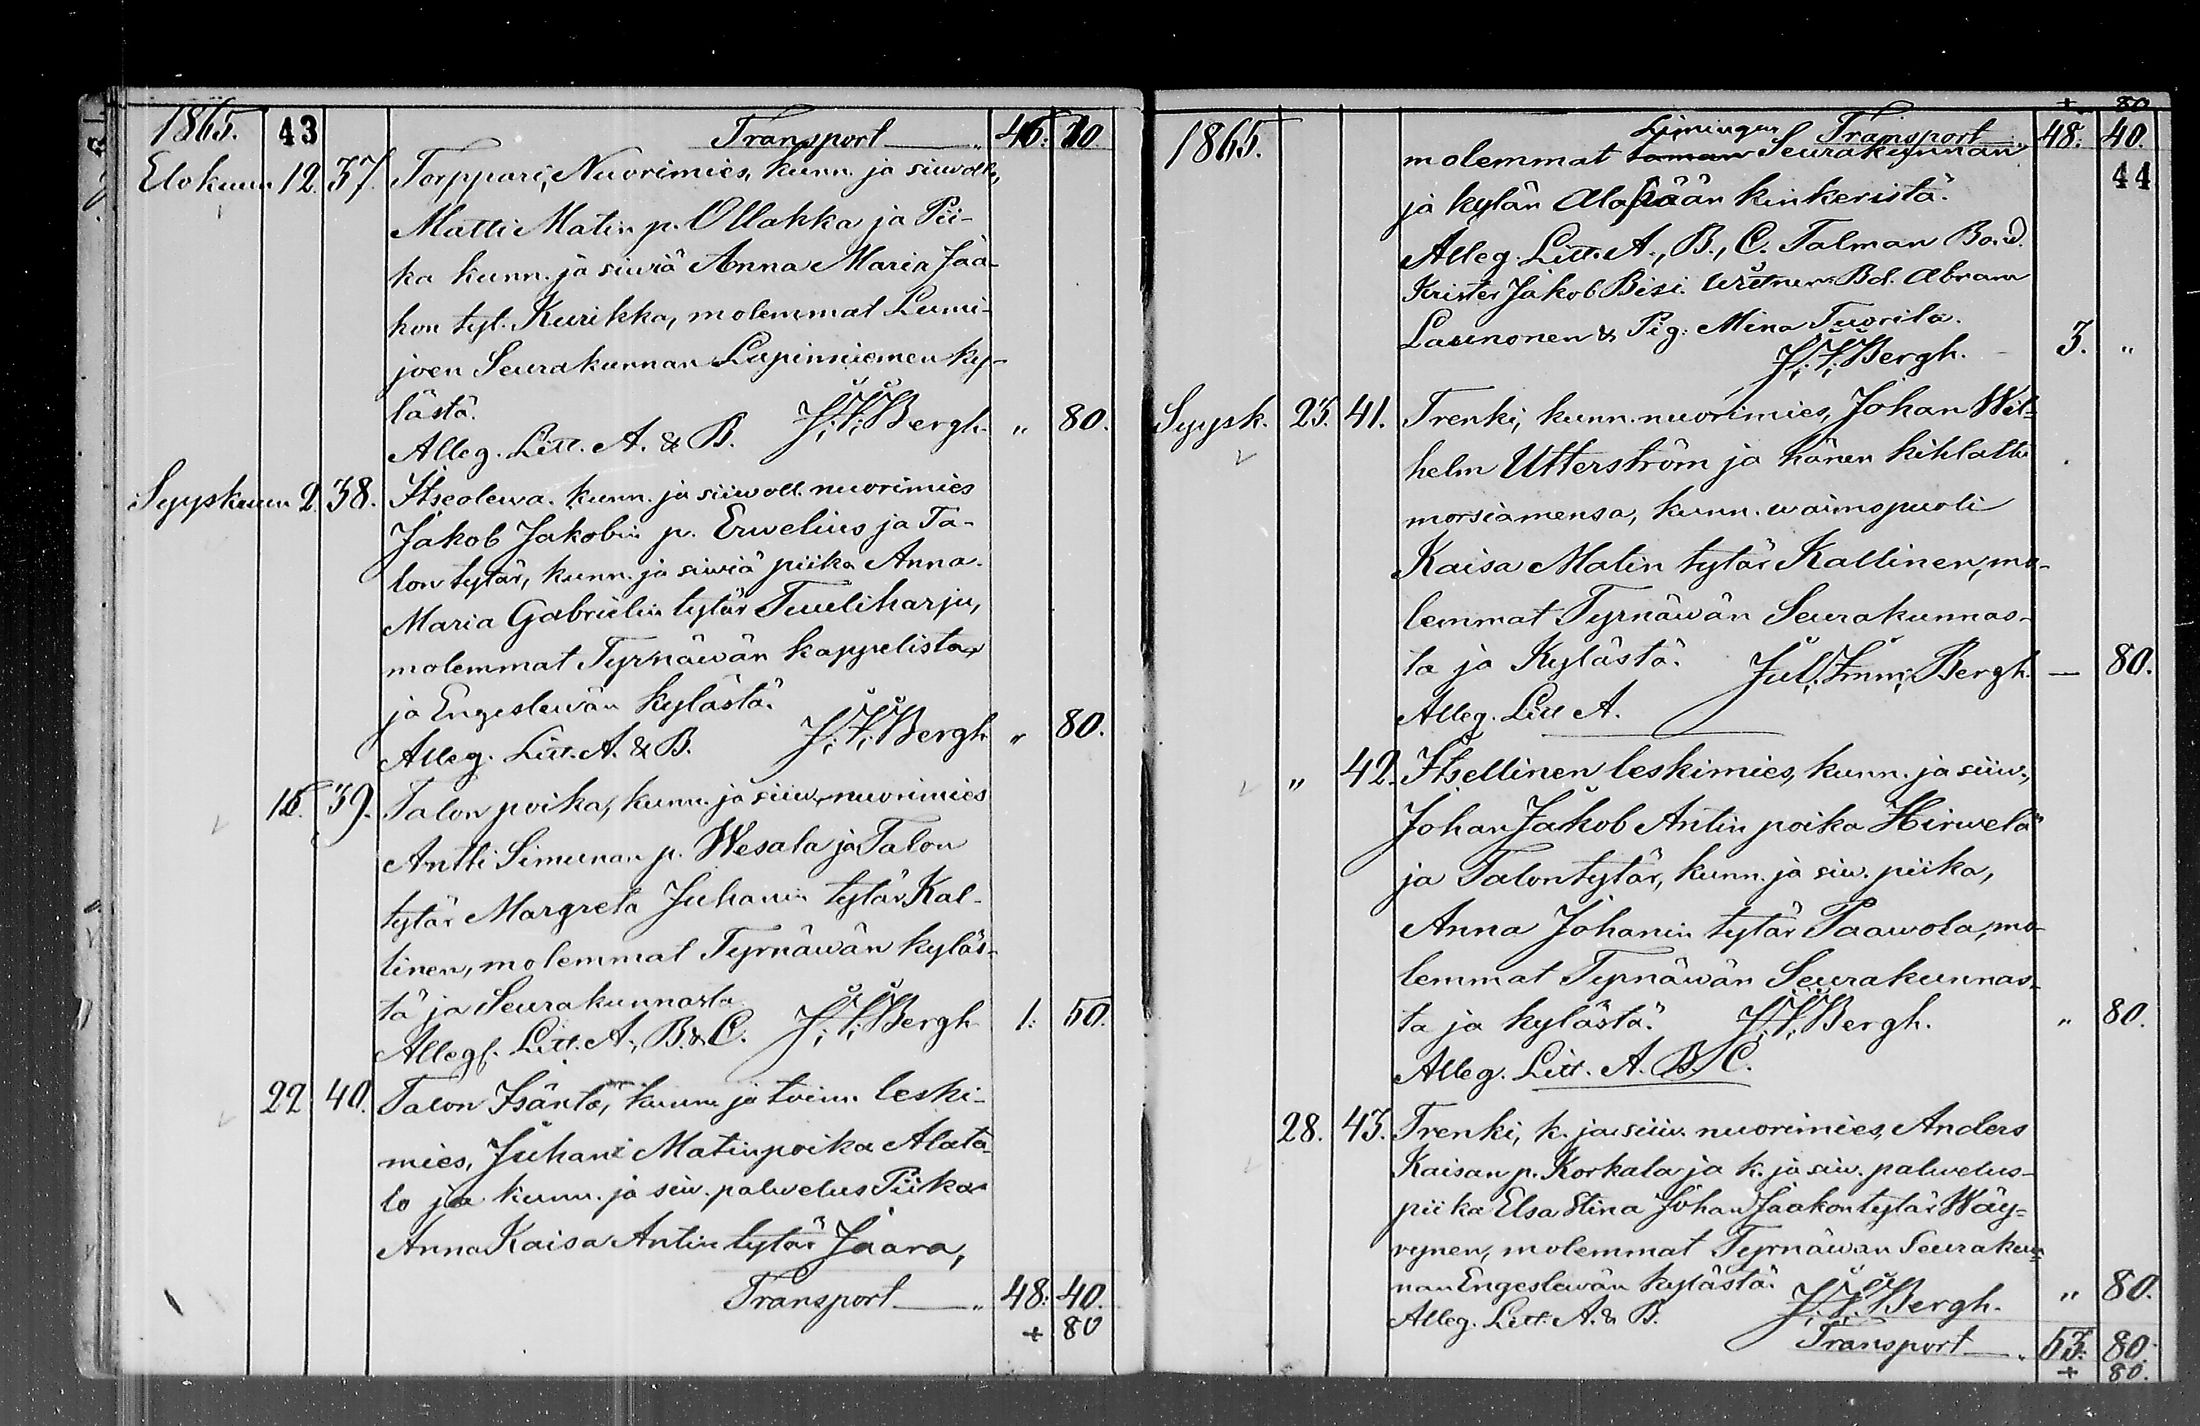 1865. 43 Transport 46: 10.
Elokuun 12. 37. Torppari, Nuorimies, kunn. ja siiwoll.,
Matti Matin p. Ollakka ja Pii-
ka kunn. ja siwiä Anna Maria Jaa-
kon tyt. Kurikka, molemmat Lumi-
joen Seurakunnan Lapinniemen ky-
lästä.
Alleg. Litt. A. & B. J. I. Bergh. " 80.
Syyskuun 2. 38. Itseolewa. kunn. ja siiwoll. nuorimies
Jakob Jakobin p. Erwelius ja Ta-
lon tytär, kunn. ja siwiä piika Anna
Maria Gabrielin tytär Tuuliharju,
molemmat Tyrnäwän kappelista
ja Engeslewän kylästä.
Alleg. Litt. A. & B. J. I. Bergh " 80.
15. 39. Talon poika, kunn. ja siiw. nuorimies
Antti Simunan p. Wesala ja Talon
tytär Margreta Juhanin tytär Kal-
linen, molemmat Tyrnäwän kyläs-
tä ja Seurakunnasta
Alleg. Litt. A., B. & C. J. I. Bergh 1: 50.
22. 40. Talon Isäntä, kunn. ja toim. leski-
mies, Juhani Matinpoika Alata-
lo ja kunn. ja siw. palwelus Piika
Anna Kaisa Antin tytär Jaara,
Transport 48: 40.
+ 80
+ 80
1865. Transport 48: 40.
Limingan
molemmat taman Seurakunnan
44
ja kylän Alapään kinkeristä.
Alleg. Litt. A., B., C. Talman Bond.
Krister Jakob Bisi. Witnen Bd. Abram
Launonen & Pig. Mina Tuorila.
J. I. Bergh. 3. "
Syysk. 23. 41. Trenki, kunn. nuorimies, Johan Wil-
helm Utterström ja hänen kihlattu
morsiamensa, kunn. waimopuoli
Kaisa Matin tytär Kallinen, mo-
lemmat Tyrnäwän Seurakunnas-
ta ja Kylästä. Jul. Imm. Bergh. — 80.
Alleg. Litt A.
" 42. Itsellinen leskimies, kunn. ja siiw.,
Johan Jakob Antin poika Hirwelä
ja Talontytär, kunn. ja siw. piika,
Anna Johanin tytär Paawola, mo-
lemmat Tyrnäwän Seurakunnas-
ta ja kylästä. J. I. Bergh. " 80.
Alleg. Litt. A. B. C.
28. 43. Trenki, k. ja siiw. nuorimies, Anders
Kaisan p. Korkala ja k. ja siw. palwelus-
piika Elsa Stina Johan Jaakon tytär Wäy-
rynen, molemmat Tyrnäwän Seurakun-
nan Engeslewän kylästä.
Alleg. Litt. A. & B. J. I. Bergh. " 80.
Transport 53: 80.
+ 80.